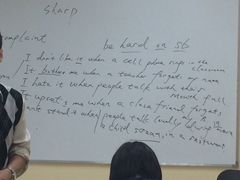 sharp
complaint
be hard on sb
I don't like it when a cell phone rings in the classroom
It bothers me when a teacher forgets my name
I hate it when people talk with their mouth full
It upsets me when a close friend forgets my
stand it when people talk loudly
a child scream, in a restaurant